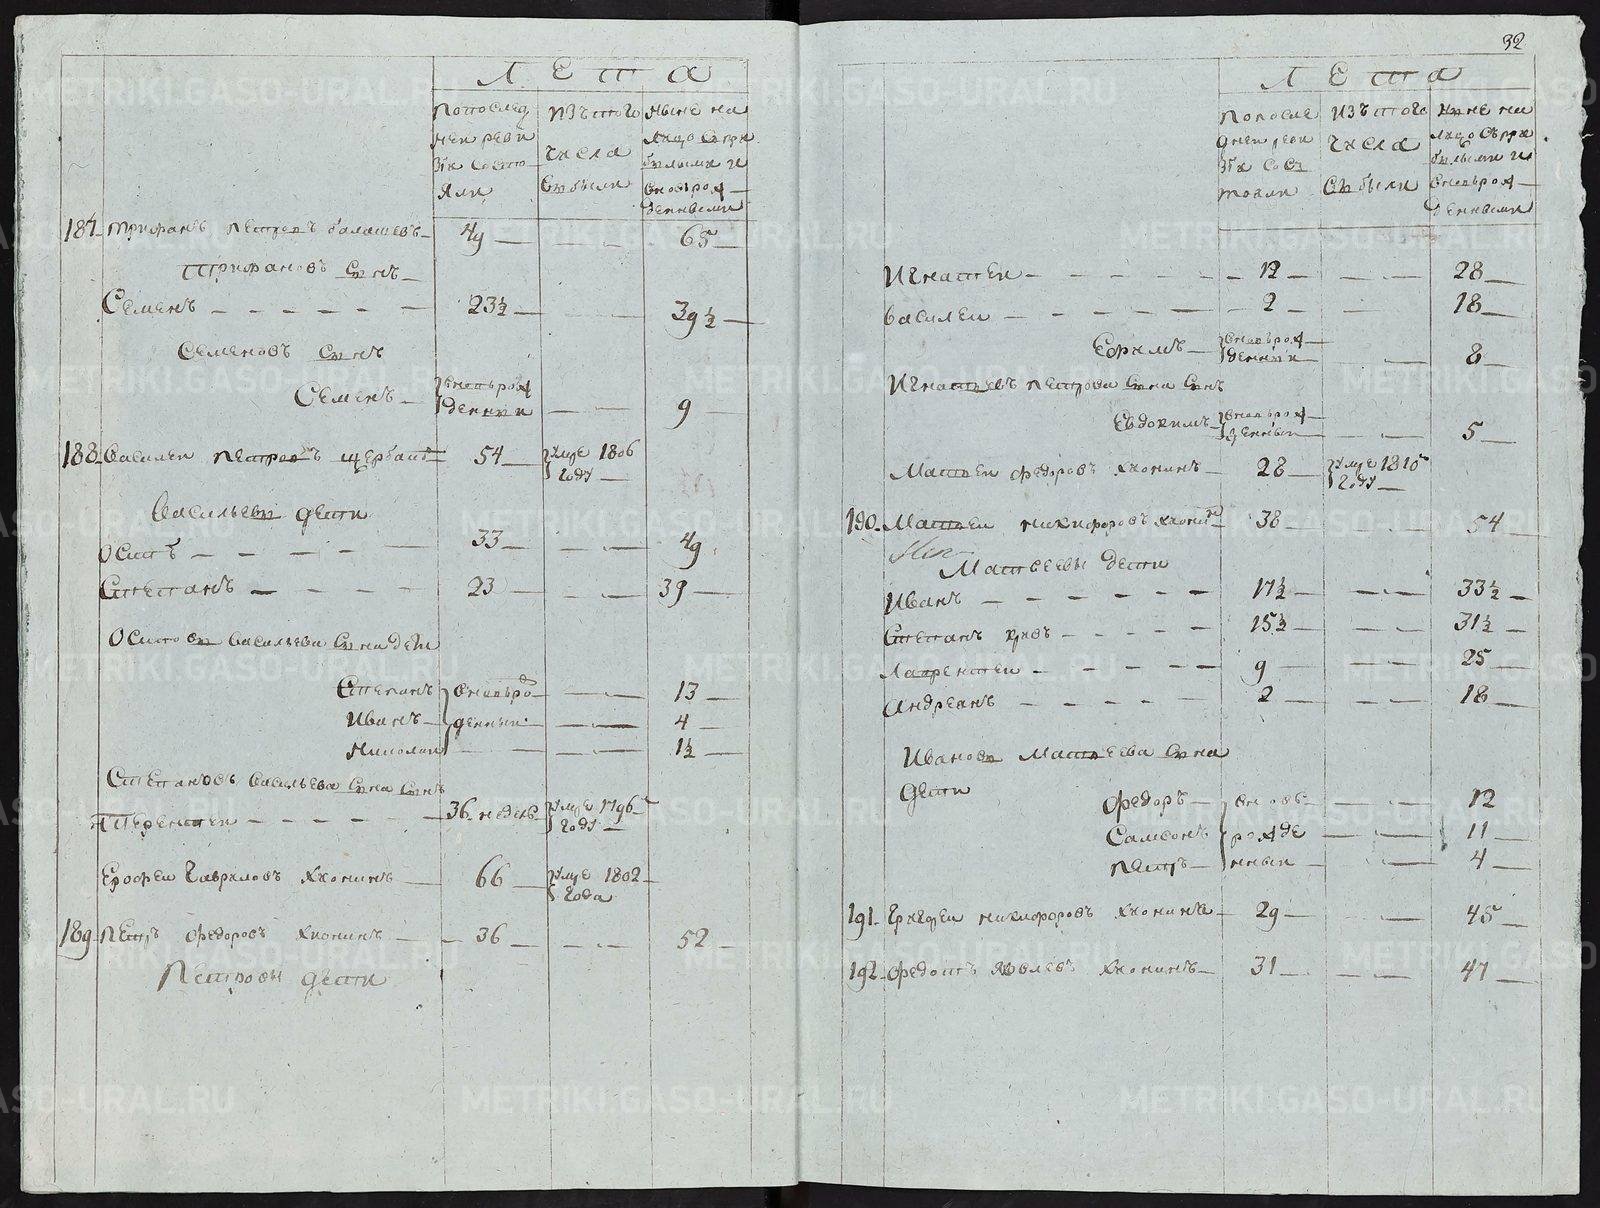 Лета
По послед
ней реви
зіи состо
яли
Изъ того
числа
выбыли
Ныне на
лицо съ при
былыми и
вновь рож
денными
187 Трифанъ Петровъ балашевъ 49 65
Трифановъ сынъ
Семенъ 23½ 39½
Семеновъ сынъ
Семенъ вновь рож
денныи 9
188 Василеи Петровъ 54 умре 1806
году
Васильевы дети
Осипъ 33 49
Степанъ 23 39
Осиповы Васильева сына дети
Степанъ вновь ро 13
Иванъ денныи 4
Николаи 1½
Степановъ Васильева сына сынъ
Терентеи 36 недель умре 1796
году
Ерофеи Гавриловъ Хионинъ 66 умре 1802
года
189 Петръ Федоровъ Хионинъ 36 52
Петровы дети
32
Лета
По после
дней реви
зіи сос
тояли
Изъ того
числа
выбыли
Ныне на
лицо съ при
былыми и
вновь рож
денными
Игнатеи 12 28
Василеи 2 18
Ефимъ вновь рож
денныи 8
Игнатьевъ Петрова сына сынъ
Евдокимъ вновь рож
денныи 5
Матвеи Федоровъ Хионинъ 28 умре 1815
году
190 Матвеи Никифоровъ Хионинъ 38 54
Матвеевы дети
Иванъ 17½ 33½
Степанъ 15½ 31½
Лаврентеи 9 25
Андреанъ 2 18
Ивановы Матвеева сына
дети
Федоръ вновь 12
Самсонъ рожде 11
Петръ нныи 4
191 Григореи Никифоровъ Хионинъ 29 45
192 Федотъ Яковлевъ Хионинъ 31 47
METRIKI.GASO-URAL.RU